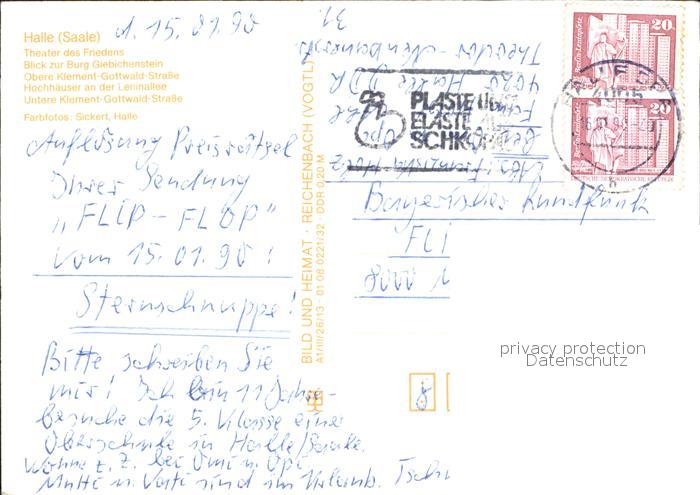 Halle (Saale)
Theater des Friedens
Blick zur Burg Giebichenstein
Obere Klement-Gottwald-Straße
Hochhäuser an der Leninallee
Untere Klement-Gottwald-Straße
Farbfotos: Sickert, Halle
d. 15.01.90
Auflösung Preisrätsel
Ihrer Sendung
"FLIP - FLOP"
vom 15.01.90!
Sternschnuppe!
Bitte schreiben Sie
mir! Ich bin 11 Jahre-
besuche die 5. Klasse einer
Oberschule in Halle/Saale.
Wohne z. Z. bei Omi u. Opi.
Mutti u. Vati sind im Urlaub. Tschü
BILD UND HEIMAT · REICHENBACH (VOGTL)
A1/III/26/13 · 01 08 0221/32 · DDR 0,20 M
PLASTE UND
ELASTE
SCHKOPAU
20
20
DEUTSCHE DEMOKRATISCHE REPUBLIK
Theodor-
4020 Halle DDR
Bayerischer Rundfunk
FLI
8000 M
privacy protection
Datenschutz